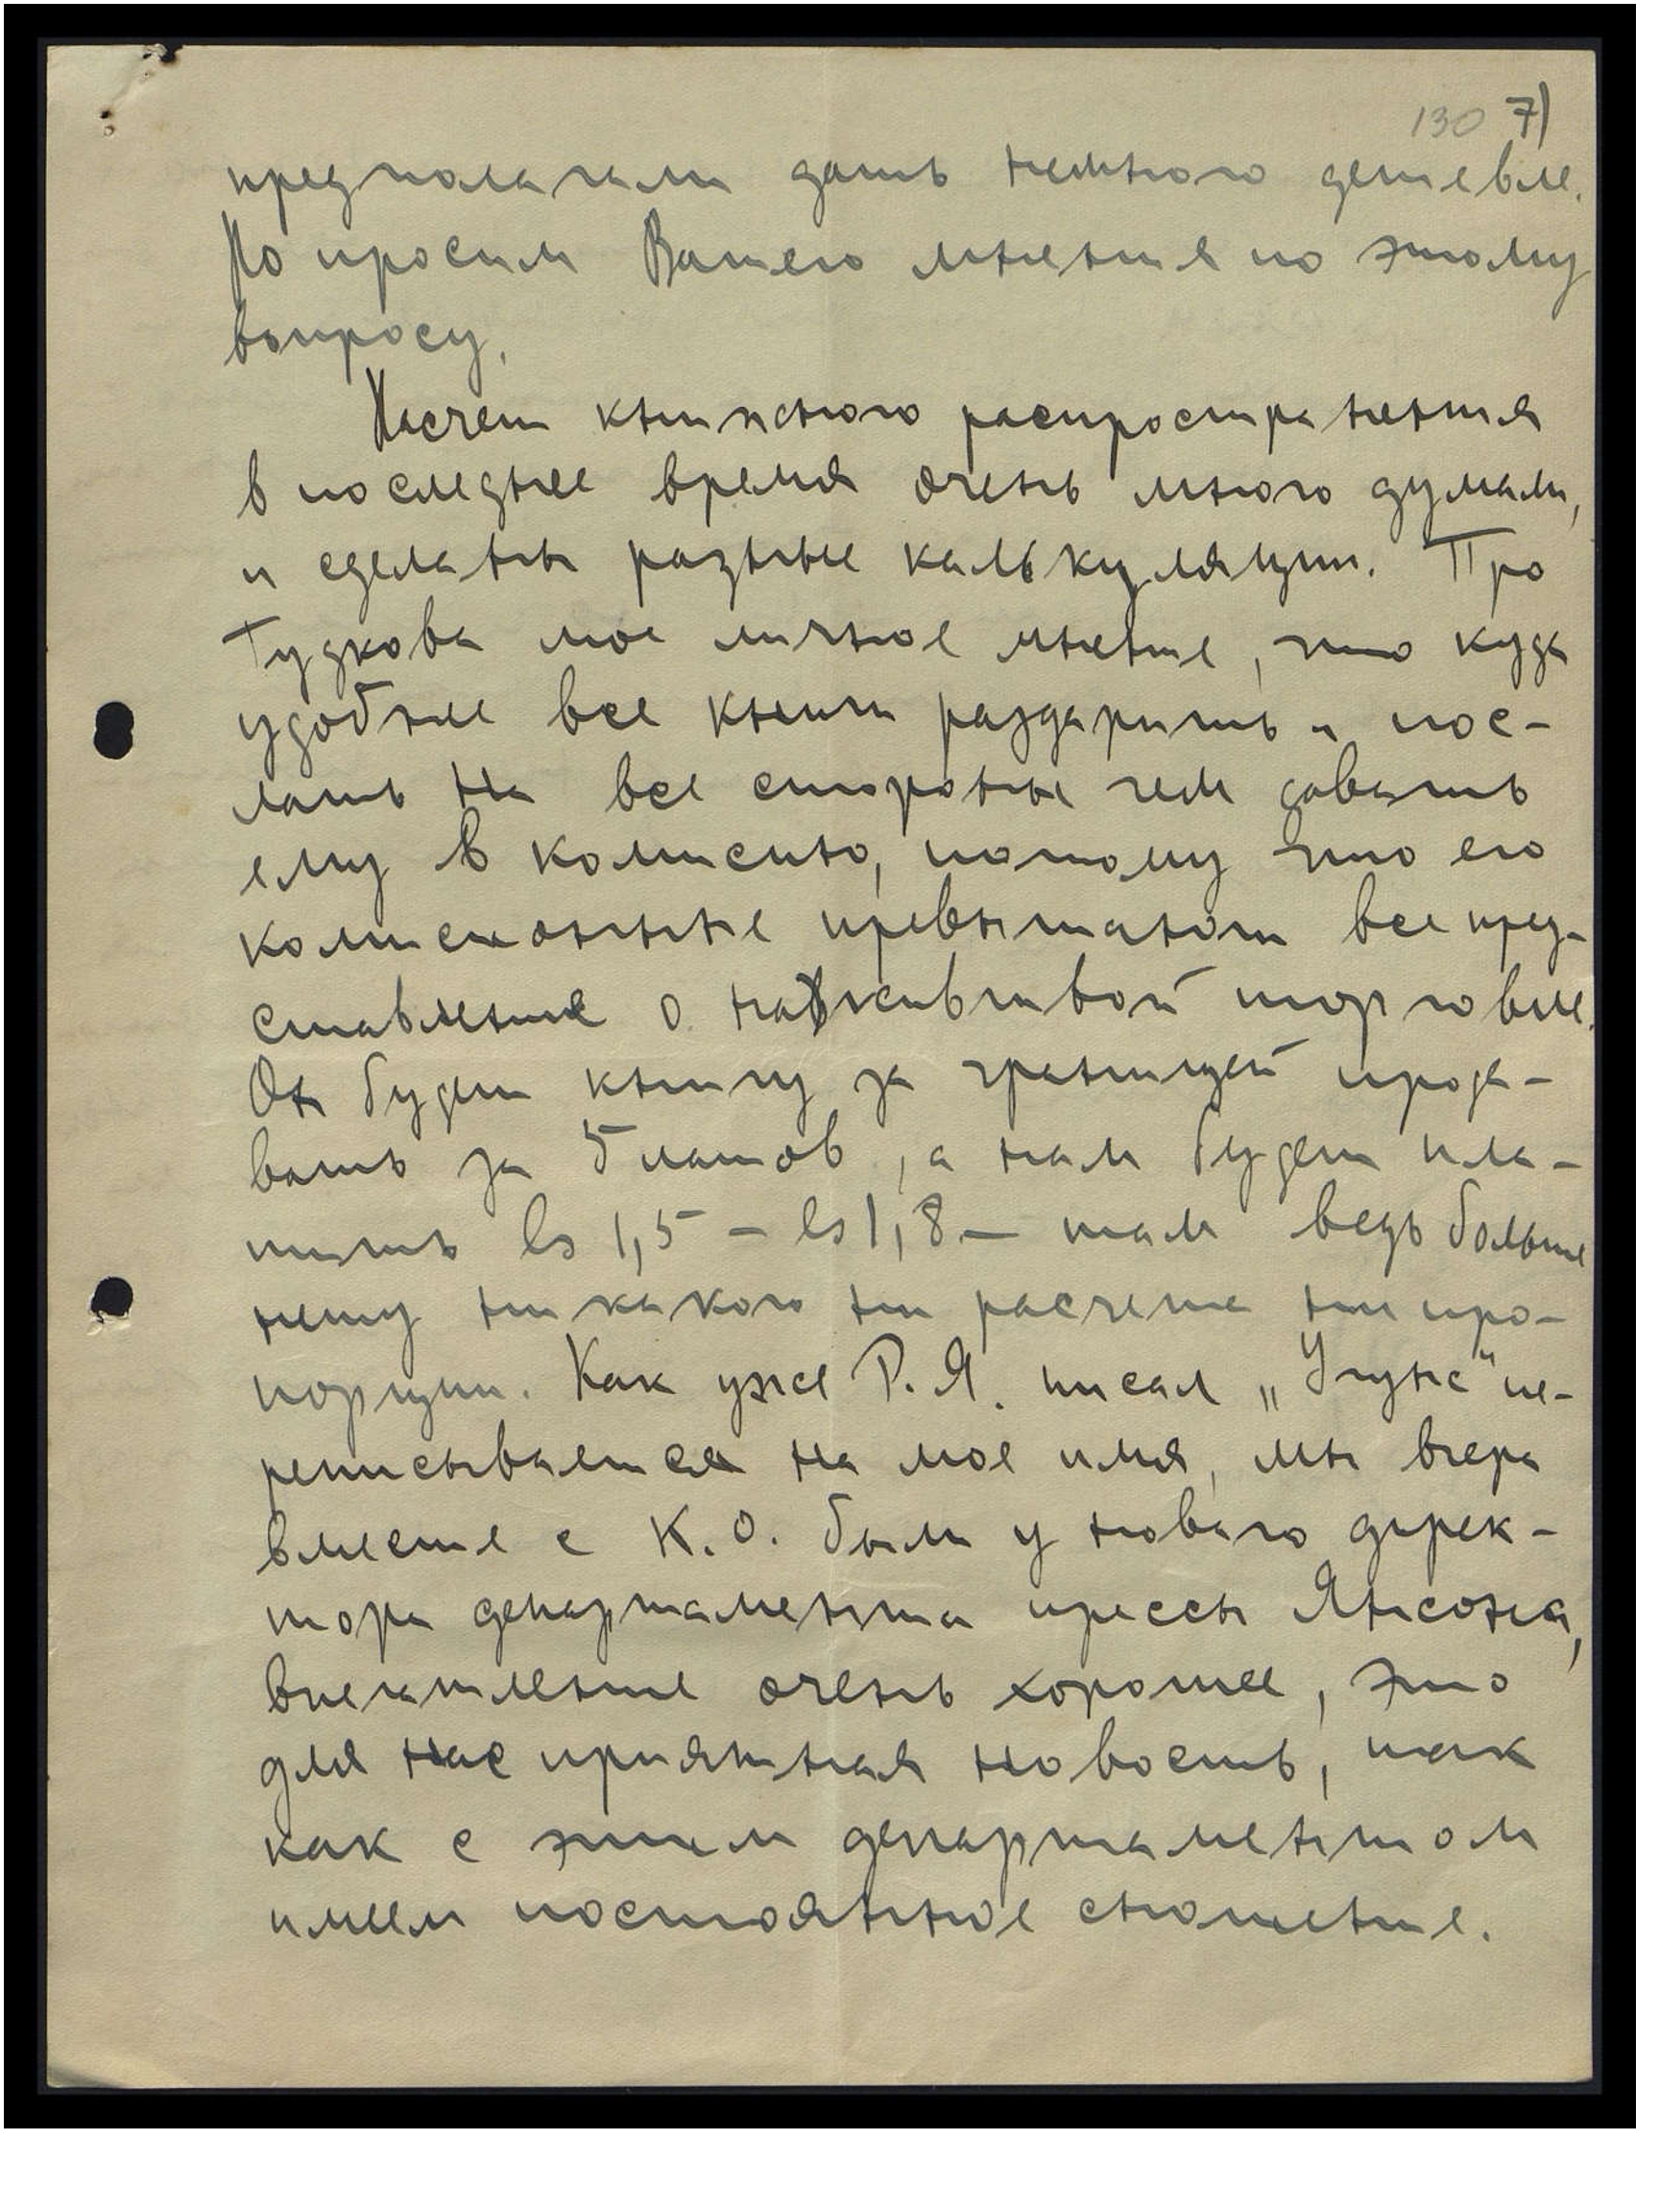 130 7)
предполагали дать немного дешевле.
Но просим Вашего мнения по этому
вопросу.
Насчет книжного распространения
в последнее время очень много думали,
и сделаны разные калькуляции. Про
Гудкова мое личное мнение, что куда
удобнее все книги раздарить и пос-
лать на все стороны чем давать
ему в комисию, потому что его
комисионные превышают все пред-
ставление о наживливой торговле.
Он будет книгу за границей прода-
вать за 5 латов, а нам будет пла-
тить ls 1,5 – ls 1,8 – там ведь больше
нету никакого ни расчета ни про-
порции. Как уже Р.Я. писал „Угунс" пе-
реписывается на мое имя, мы вчера
вместе с К.О. были у новаго дирек-
тора департамента прессы Янсона,
впечатление очень хорошее, это
для нас приятная новость, так
как с этим департаментом
имеем постоянное сношение.